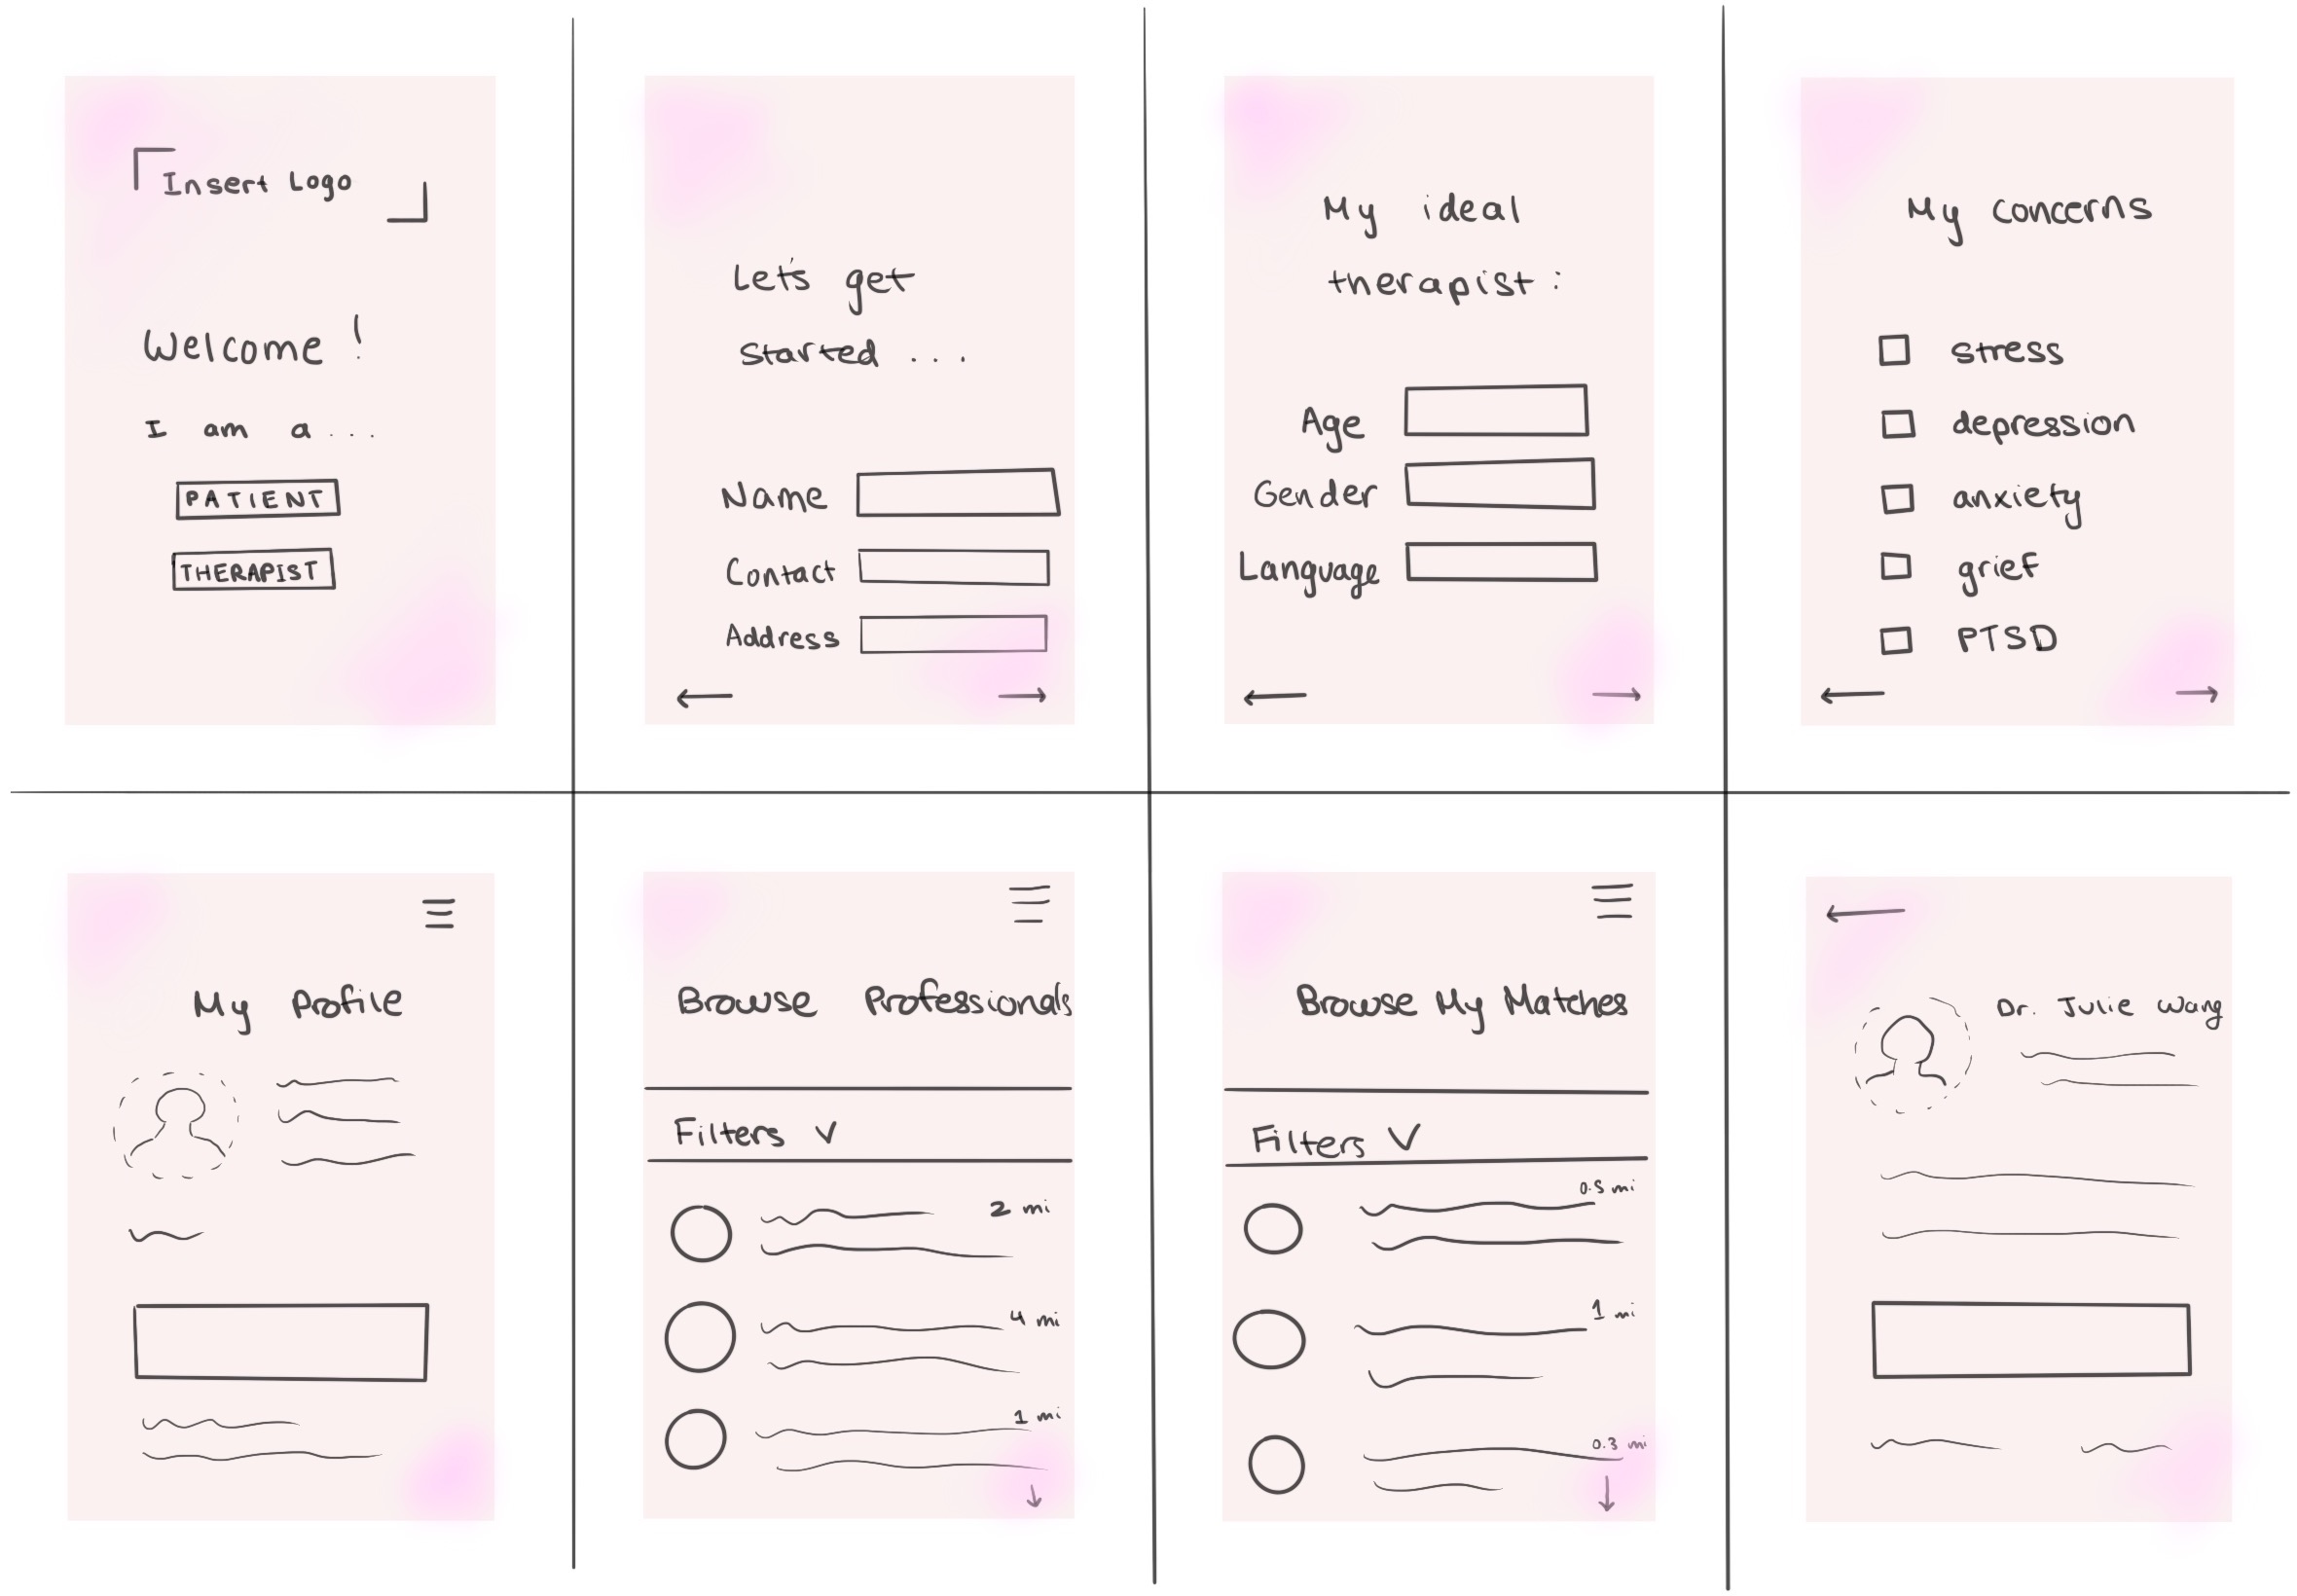 Insert Logo
Welcome!
I am a...
PATIENT
THERAPIST
Let's get
started ...
Name
Contact
Address
My ideal
therapist:
Age
Gender
Language
My concerns
stress
depression
anxiety
grief
PTSD
My Profile
Browse Professionals
Filters
2 mi
4 mi
1 mi
Browse My Matches
Filters
0.5 mi
1 mi
0.3 mi
Dr. Julie Wang